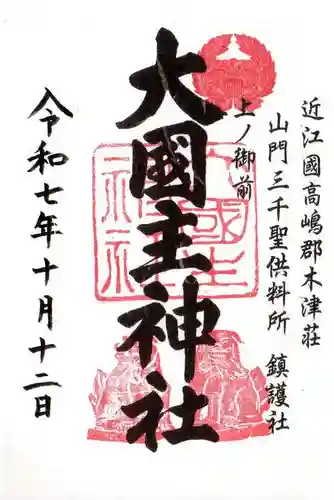 近江國高嶋郡木津荘
山門三千聖供料所 鎮護社
上ノ御前
大國主神社
令和七年十月十二日